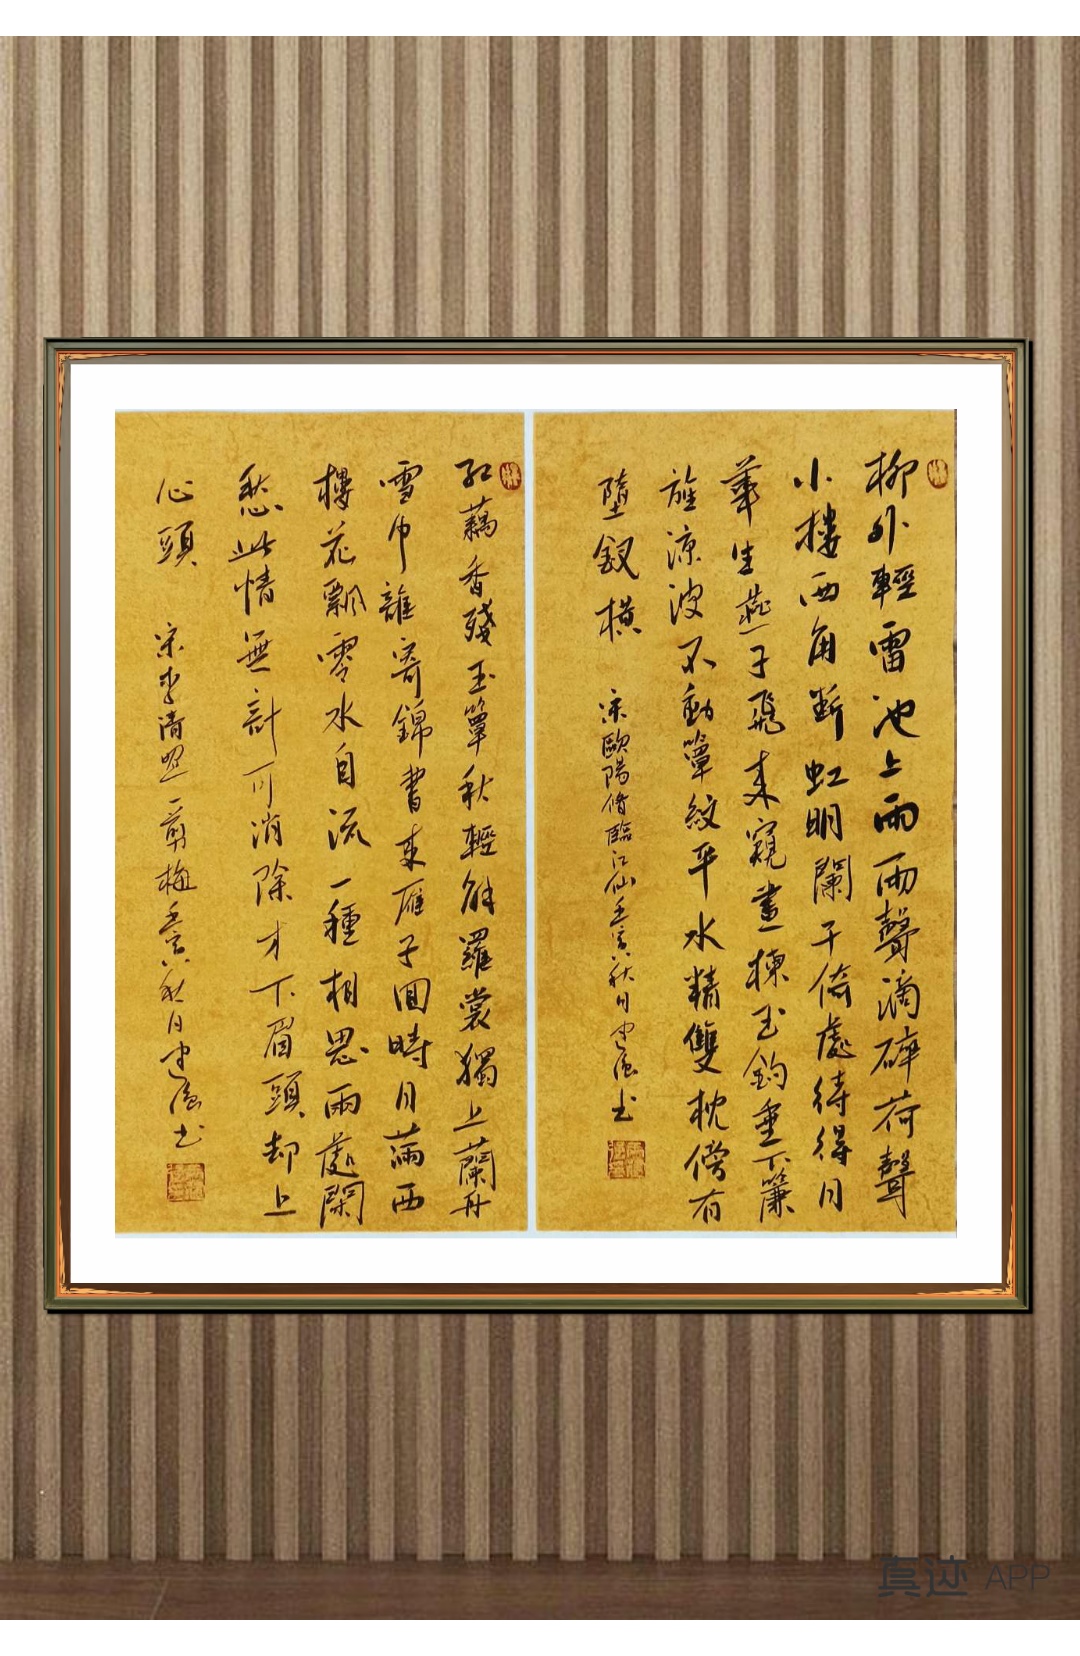 柳外輕雷池上雨雨聲滴碎荷聲
小樓西角断虹明闌干倚處待得月
華生燕子飛來窺畫棟玉鈎垂下簾
旌涼波不動簟紋平水精雙枕傍有
墮釵橫 宋歐陽脩臨江仙壬寅秋月書
紅藕香殘玉簟秋輕解羅裳獨上蘭舟
雲中誰寄錦書來雁子回時月滿西
樓花飄零水自流一種相思兩處閑
愁此情無計可消除才下眉頭却上
心頭 宋李清照一剪梅壬寅秋月書
真迹 APP